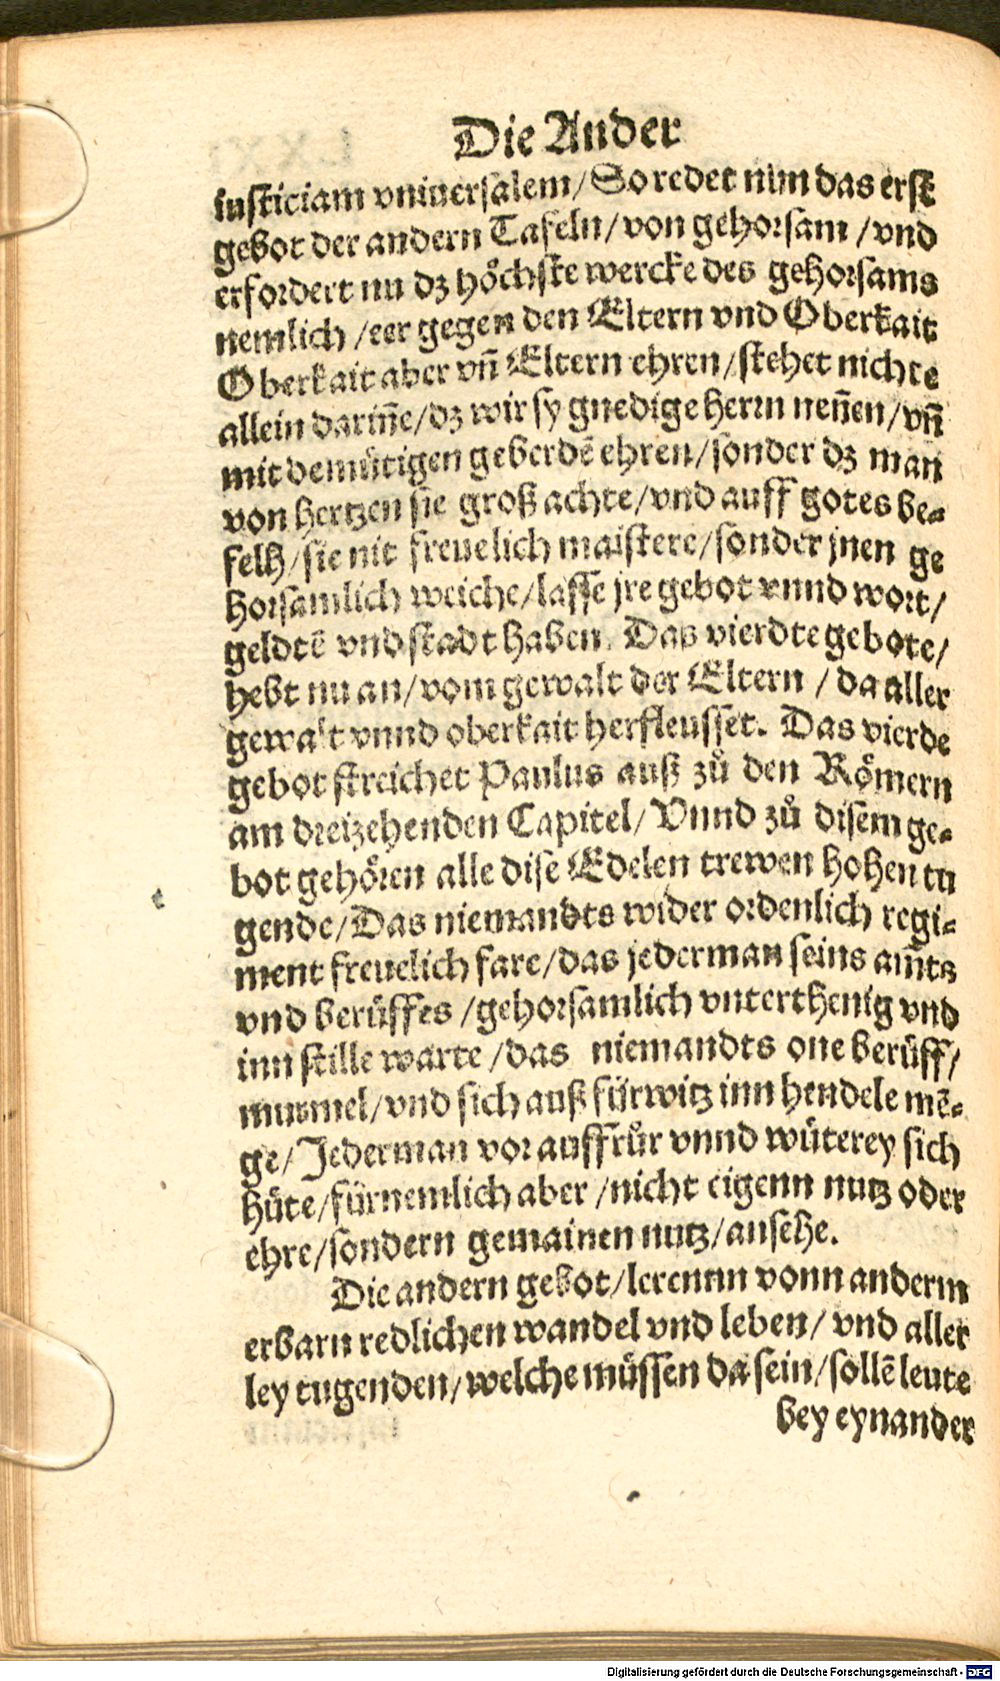 Die Ander
iusticiam vniuersalem/ So redet nun das erst
gebot der andern Tafeln/ von gehorsam /vnd
erfordert nu dz höchste wercke des gehorsams
nemlich /eer gegen den Eltern vnd Oberkait
Oberkait aber vñ Eltern ehren/stehet nichte
allein dariñe/dz wir sy gnedige herrn neñen/vñ
mit demütigen geberdē ehren/sonder dz man
von hertzen sie groß achte/vnd auff gotes be-
felh/sie nit freuelich maistere/sonder jnen ge
horsamlich weiche/lasse jre gebot vnnd wort/
geldtē vnd stadt haben. Das vierdte gebote/
hebt nu an/vom gewalt der Eltern / da aller
gewalt vnnd oberkait herfleusset. Das vierde
gebot streichet Paulus auß zů den Römern
am dreizehenden Capitel/ Vnnd zů disem ge-
bot gehören alle dise Edelen trewen hohen tu
gende/Das niemandts wider ordenlich regi-
ment freuelich fare/das jederman seins am̃ts
vnd berüffes /gehorsamlich vnterthenig vnd
inn stille warte /das niemandts one berüff/
murmel/vnd sich auß fürwitz inn hendele mē-
ge/Jederman vor auffrůr vnnd wüterey sich
hüte/fürnemlich aber /nicht eigenn nutz oder
ehre/sondern gemainen nutz/ansehe.
Die andern gebot/lerennn vonn anderm
erbarn redlichen wandel vnd leben/ vnd aller
ley tugenden/welche müssen da sein/sollē leute
bey eynander
Digitalisierung gefördert durch die Deutsche Forschungsgemeinschaft - DFG